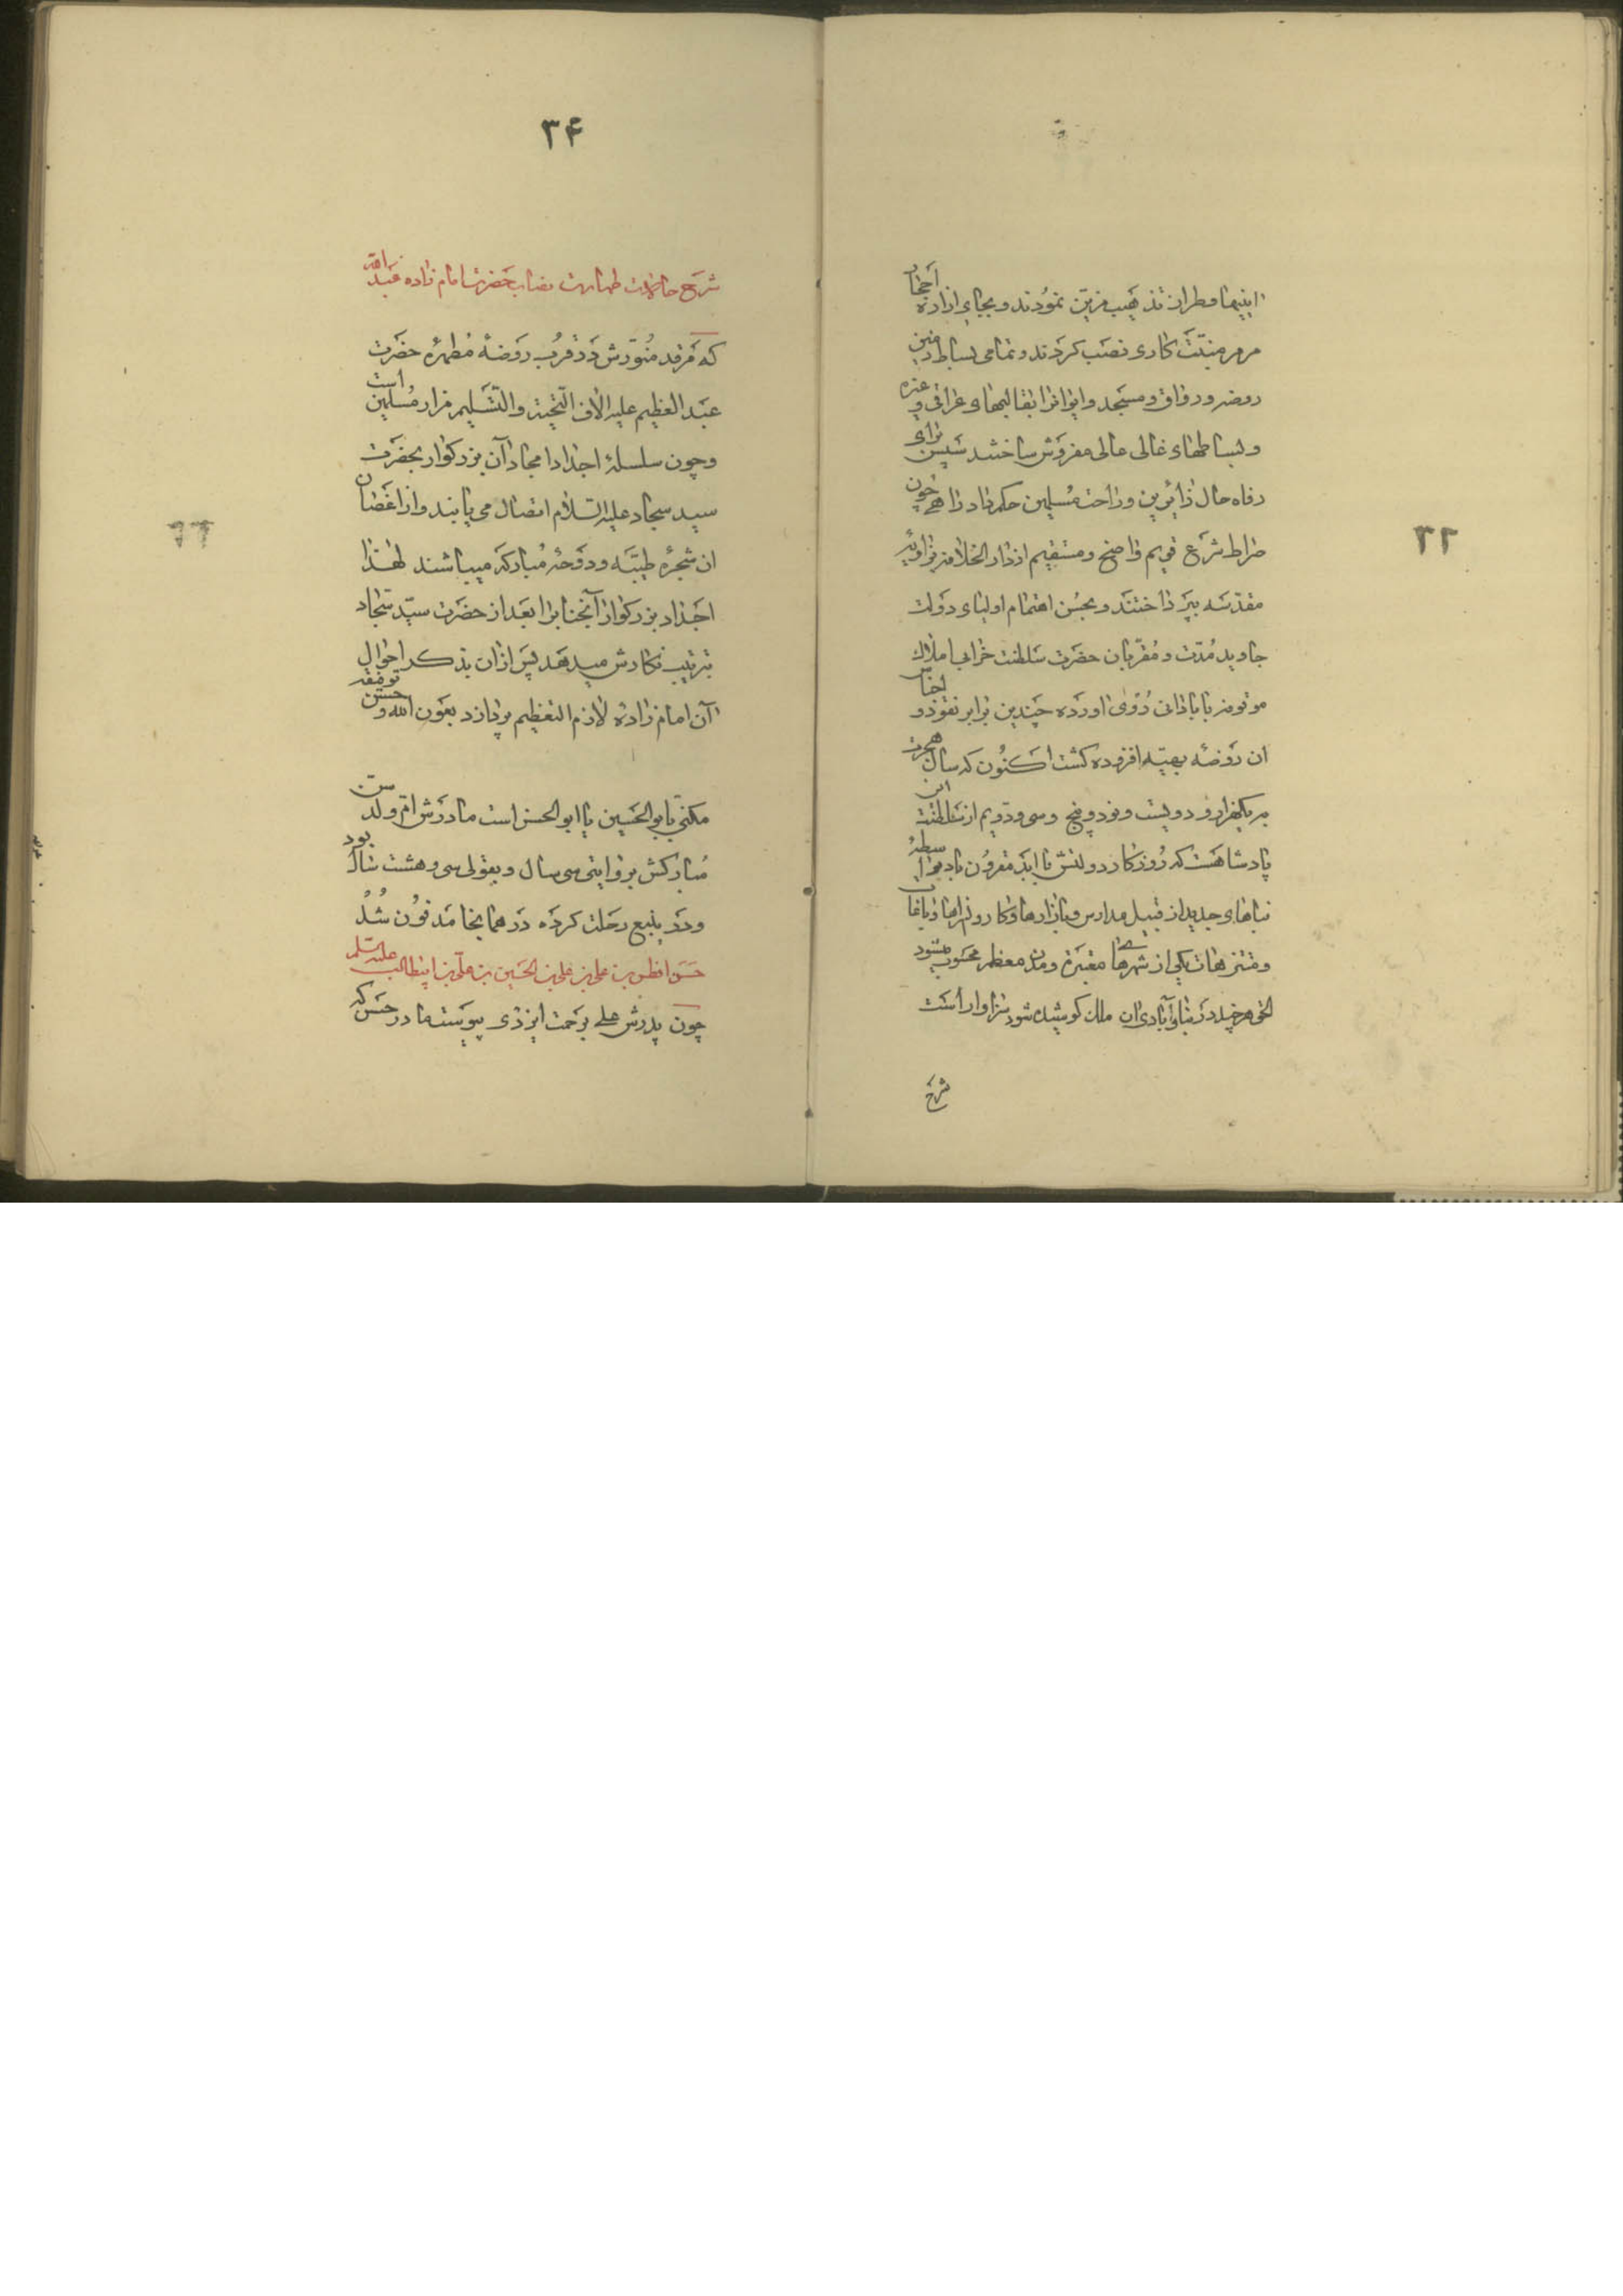 آئینها و طران تذهیب مزین نمودند و بجای ازاره احجار
مرمر منبت کاری نصب کردند و تمامی بساط زمین
روضه و رواق و مسجد و ایوانرا بقالیهای عراقی و غیره
و بساطهای غالی عالی مفروش ساختند سپس برای
رفاه حال زائرین و راحت مسلمین حکم داد راهی چون
صراط شرع قویم واضح و مستقیم از دار الخلافه بزاویه
مقدسه بپرداختند و بحسن اهتمام اولیای دولت
جاوید مدت و مقربان حضرت سلطنت خرابی املاک
موقوفه بآبادانی روی آورده چندین برابر نقود و اجناس
ان روضه بهیه افزوده کشت اکنون که سال هجرت
بر یکهزار و دویست و نود و پنج و سی و دویم از سلطنت این
پادشاهست که روزکار دولتش تا ابد مقرون باد بواسطه
بناهای جدید از قبیل مدارس و بازارها و کاروانسراها و باغات
و متنزهات یکی از شهرهای معتبره و مدن معظمه محسوب میشود
الحق هر چند در بنا و آبادی ان ملک کوشیده شود سزاوار است
شرح
۳۳
۳۴
شرح حالات طهارت نصاب حضرت امام زاده عبدالله
که مرقد منورش در قرب روضهٔ مطهرهٔ حضرت
عبد العظیم علیه الاف التحیة والتسلیم مزار مسلمین است
و چون سلسلهٔ اجداد امجاد آن بزرکوار بحضرت
سید سجاد علیه السلام اتصال می یابند و از اغصان
ان شجرهٔ طیبه و دوحهٔ مبارکه میباشند لهذا
اجداد بزرکوار آنجنابرا بعد از حضرت سید سجاد
بترتیب نکارش میدهد پس از ان بذکر احوال
آن امام زاده لازم التعظیم پردازد بعون الله و حسن توفیقه
مکنی بابو الحسین یا ابو الحسن است مادرش ام ولد سن
مبارکش بروایتی سی سال و بقولی سی و هشت سال بود
و در ینبع رحلت کرده در همانجا مدفون شد
حسن افطس بن علی بن علی بن الحسین بن علی بن ابیطالب علیه السلم
چون پدرش علی برحمت ایزدی پیوست مادر حسن که